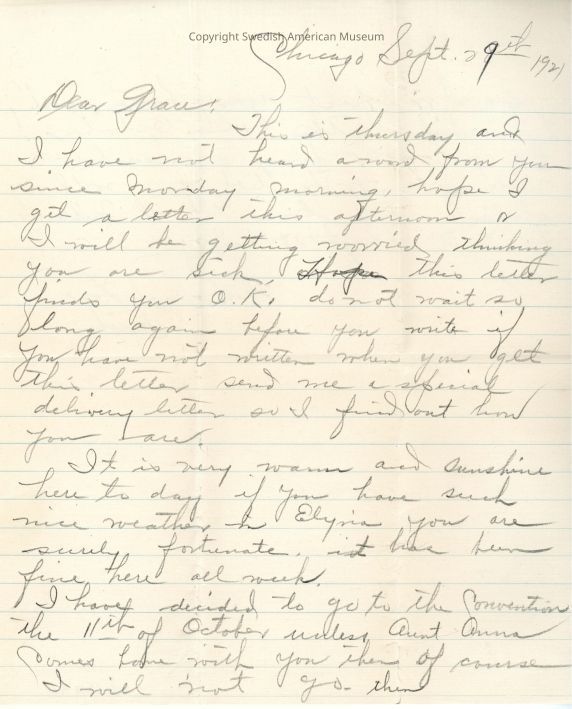 Copyright Swedish American Museum
Chicago Sept. 29th 1921
Dear Grace:
This is thursday and
I have not heard a word from you
since monday morning, hope I
get a letter this afternoon or
I will be getting worried thinking
you are sick, Hope this letter
finds you O.K. do not wait so
long again before you write if
you have not written when you get
this letter send me a special
delivery letter so I find out how
you are.
It is very warm and sunshine
here to day if you have such
nice weather in Elyria you are
surely fortunate. it has been
fine here all week.
I have decided to go to the Convention
the 11th of October unless Aunt Anna
Comes home with you then of course
I will not go then